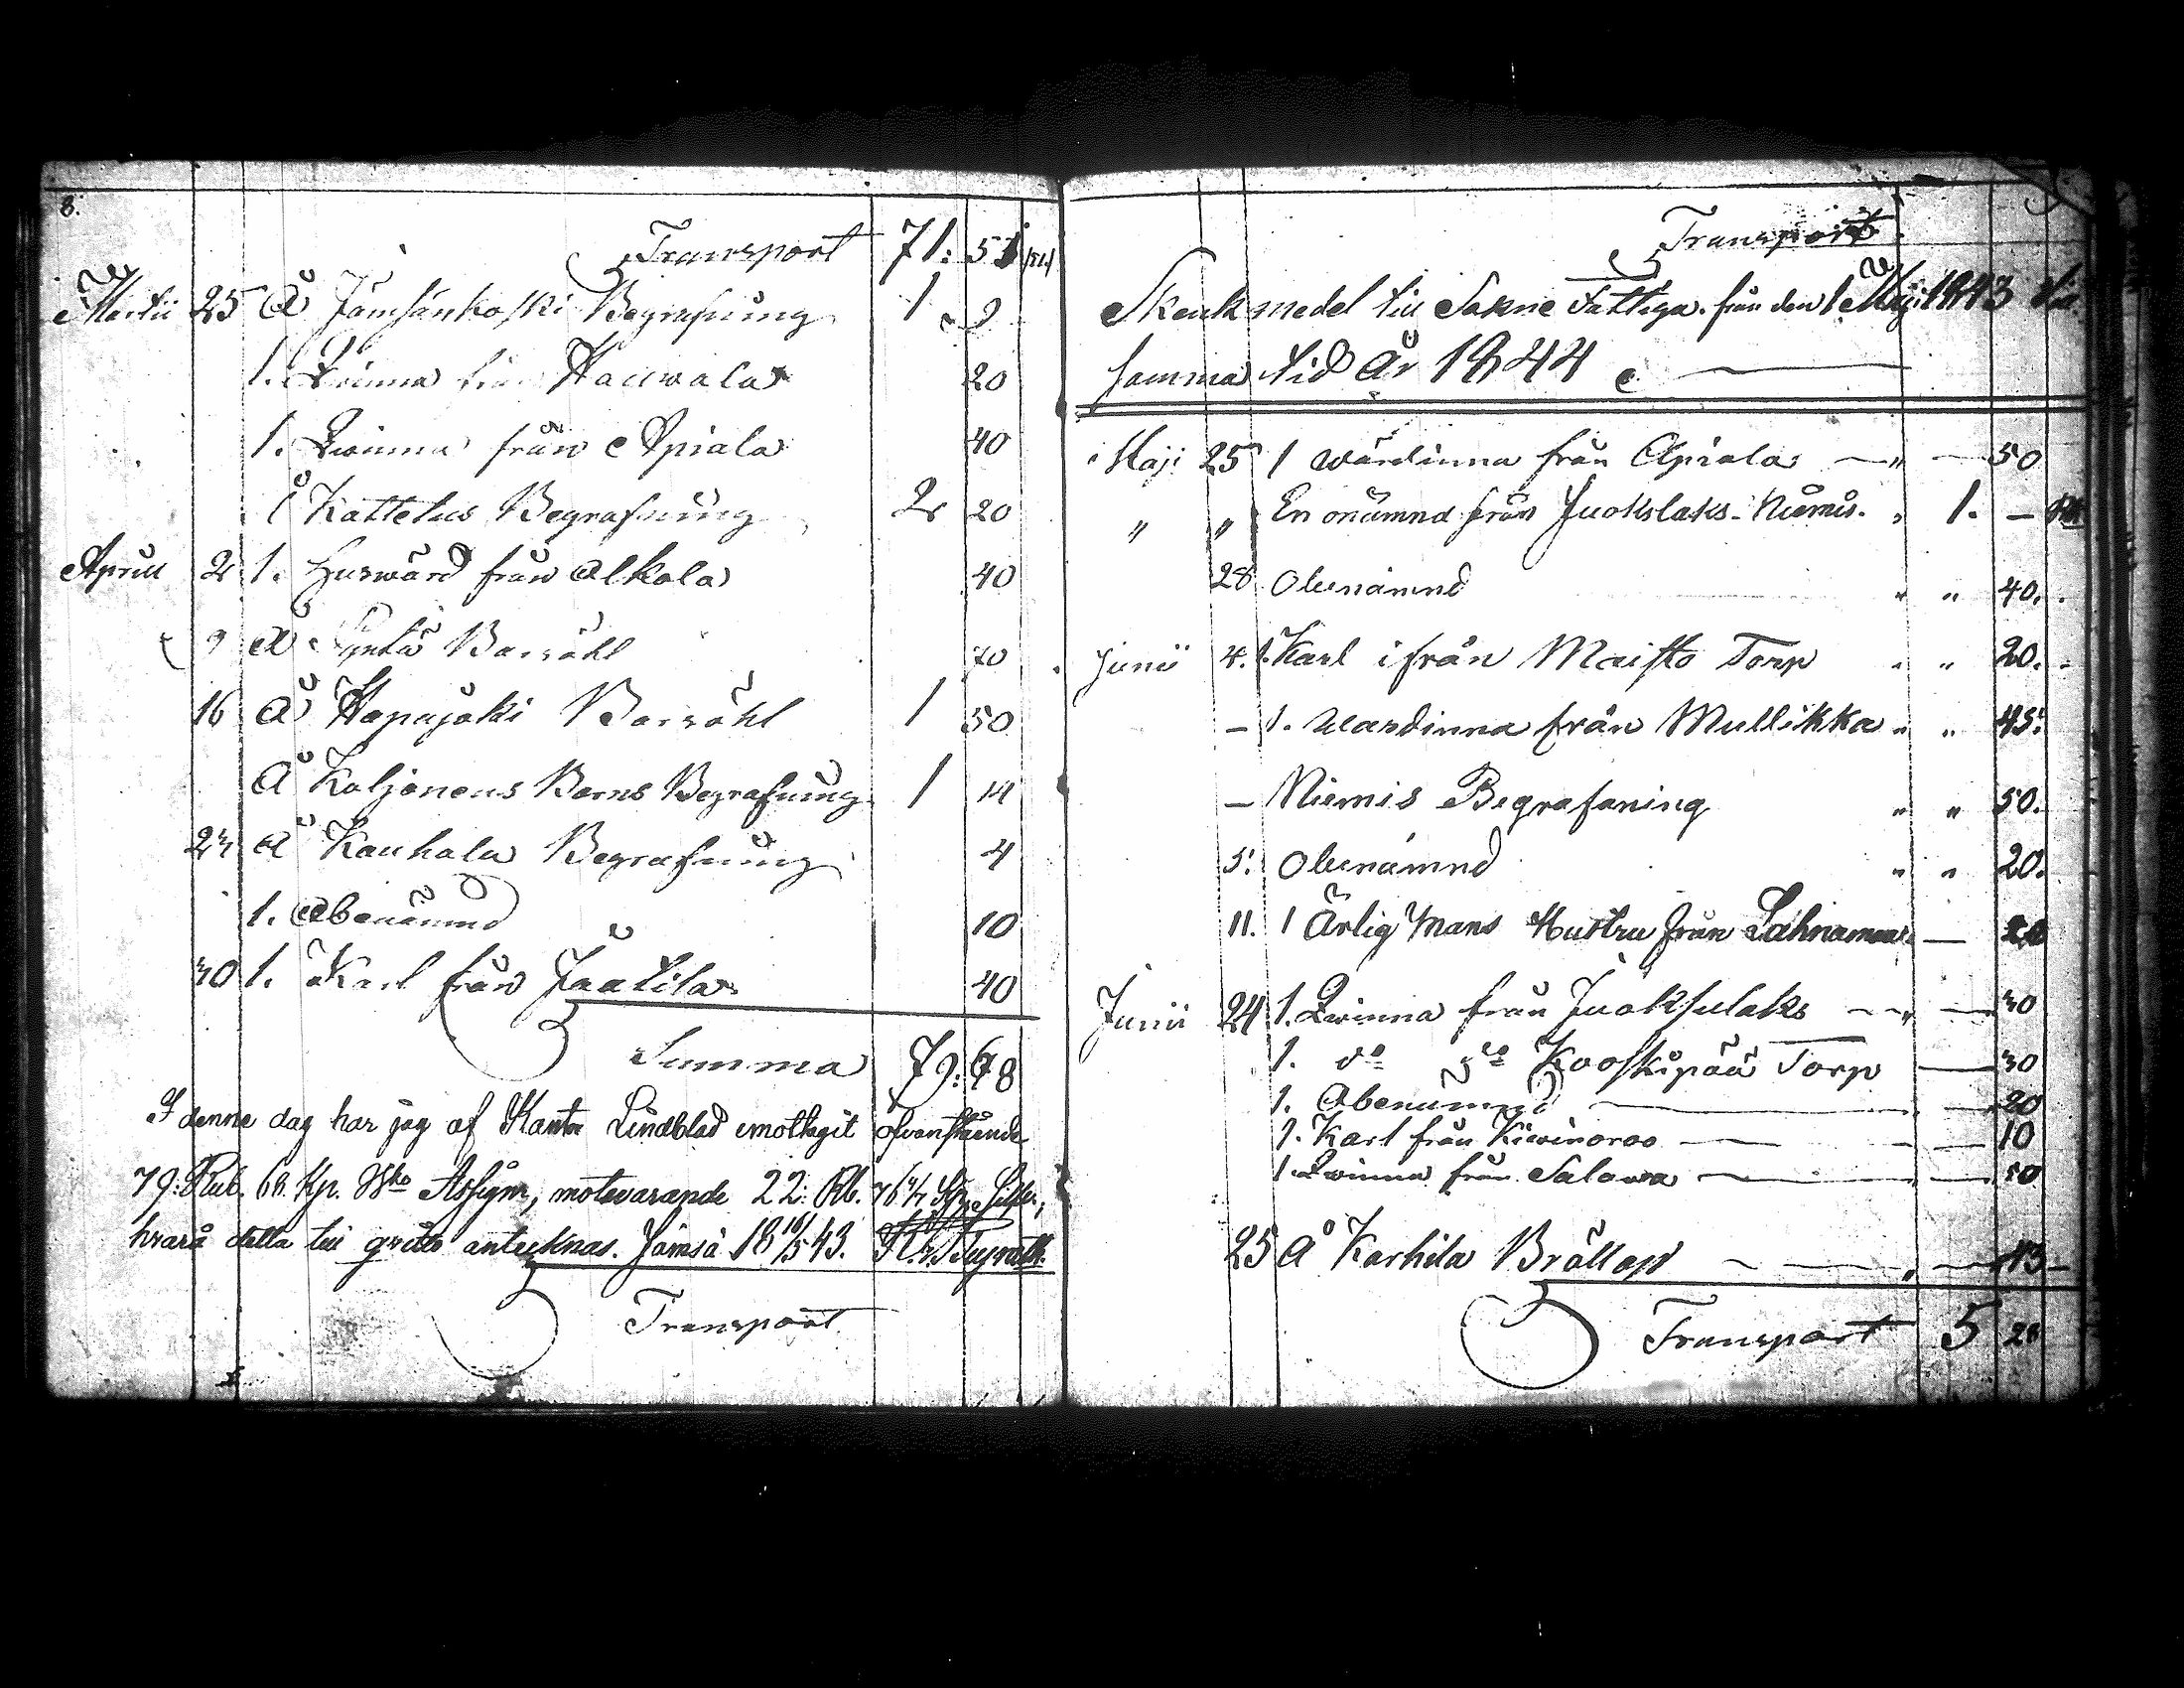 8.
Transport 71: 51
Martii 25 Å Jämsänkoski Begrafning 1 9
1. Qvinna från Hauwala 20
1. Qvinna från Apiala 40
Å Kattelus Begrafning 2 20
Aprill 2 1. Huswärd från Alkola 40
9 Å Barnöhl 70
16 Å Hopajoki Barnöhl 1 50
Å Koljonens Barns Begrafning 1 14
23 Å Kauhala Begrafning 4
1. Obenämnd 10
30 1. Karl från Jaatila 40
Summa 79: 68
I denne dag har jag af Kantor Lindblad emottagit ofvanstående
79: Rub. 68. Kp. Bko Assign, motsvarande 22: Rb. 76 4/7 Kp. Silfver,
hvarå detta till qvitto antecknas. Jämsä 18 16/5 43.
Transport
Transport
Skenk medel till Sokne Fattiga från den 1 Maji 1843 till
samma tid År 1844
Maji 25 1 wärdinna från Apiala " — 50
" " En onämnd från Juokslaks - Niemis. " 1. —
28 Obenämnd " " 40.
Junii 4. 1. Karl ifrån Maisto Torp " " 20.
— 1. Wärdinna från Mullikka " " 45.
— Niemis Begrafaning " " 50.
5. Obenämnd " " 20.
11. 1 Ärlig Mans Hustru från —
Junii 24 1. Qvinna från Juoksulaks — " — 30
1. do do Kooskipää Torp — 30
1. Obenämnd — 20
1. Karl från Kiwinoroo — 10
1. Qvinna från Salowa — 10
25 Å Karhila Bröllop — " — 43
Transport 5 28